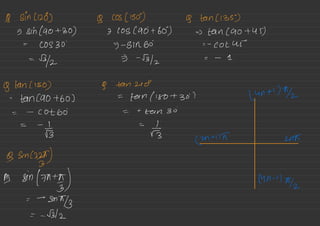 Q sin(120°)
⇒ sin(90+30)
= cos 30
= √3/2
Q cos(150°)
⇒ cos(90+60°)
⇒ -sin 60
⇒ -√3/2
Q tan(135°)
⇒ tan(90+45)
= -cot 45°
= -1
Q tan(150)
= tan(90+60)
= -cot 60
= -1/√3
Q tan 210°
= tan(180+30°)
= +tan 30
= 1/√3
(4n+1)π/2
2nπ
(4n-1)π/2
Q sin(22π/3)
sin(7π+π/3)
= -sin π/3
= -√3/2